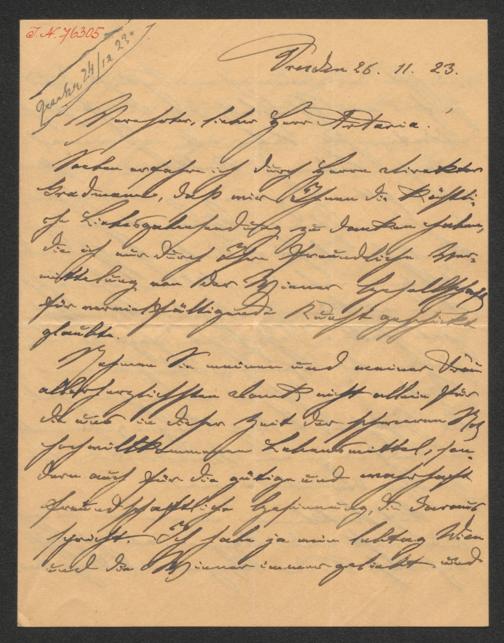 J. N. 76305
24/12 23
Dresden 26. 11. 23.
Verehrter, lieber Herr Artaria!
Soeben erfahre ich durch Herrn Direktor
Gradmann, daß wir Ihnen die köstli-
che Liebesgabensendung zu danken haben,
die ich nur durch Ihre freundliche Ver-
mittelung von der Wiener Gesellschaft
für vervielfältigende Kunst geschickt
glaubte.
Nehmen Sie meinen und meiner Frau
allerherzlichsten Dank, nicht allein für
die uns in dieser Zeit der schweren Not
hochwillkommenen Lebensmittel, son-
dern auch für die gütige und wahrhaft
freundschaftliche Gesinnung, die daraus
spricht. Ich habe ja mein Lebtag Wien
und die Wiener immer geliebt und